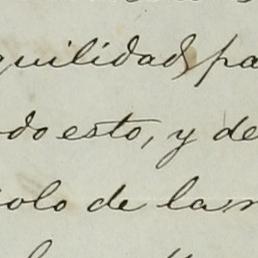 quilidad, pa
do esto, y de
olo de la